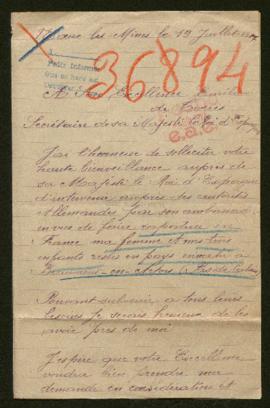 les Mines le 19 Juillet
36894
A Son Excellence Emilio
de Torrès
Secrétaire de sa Majesté le Roi d'Espagne
J'ai l'honneur de solliciter votre
haute bienveillance auprès de
sa Majesté le Roi d'Espagne
d'intervenir auprès des autorités
Allemandes par son ambassadeur
en vue de faire rapatrier en
France ma femme et mes trois
enfants restés en pays envahi à
en-Artois (Pas de Calais)
Pouvant subvenir a tous leurs
besoins Je serais heureux de les
avoir près de moi
J'espère que votre Excellence
voudra bien prendre ma
demande en considération et